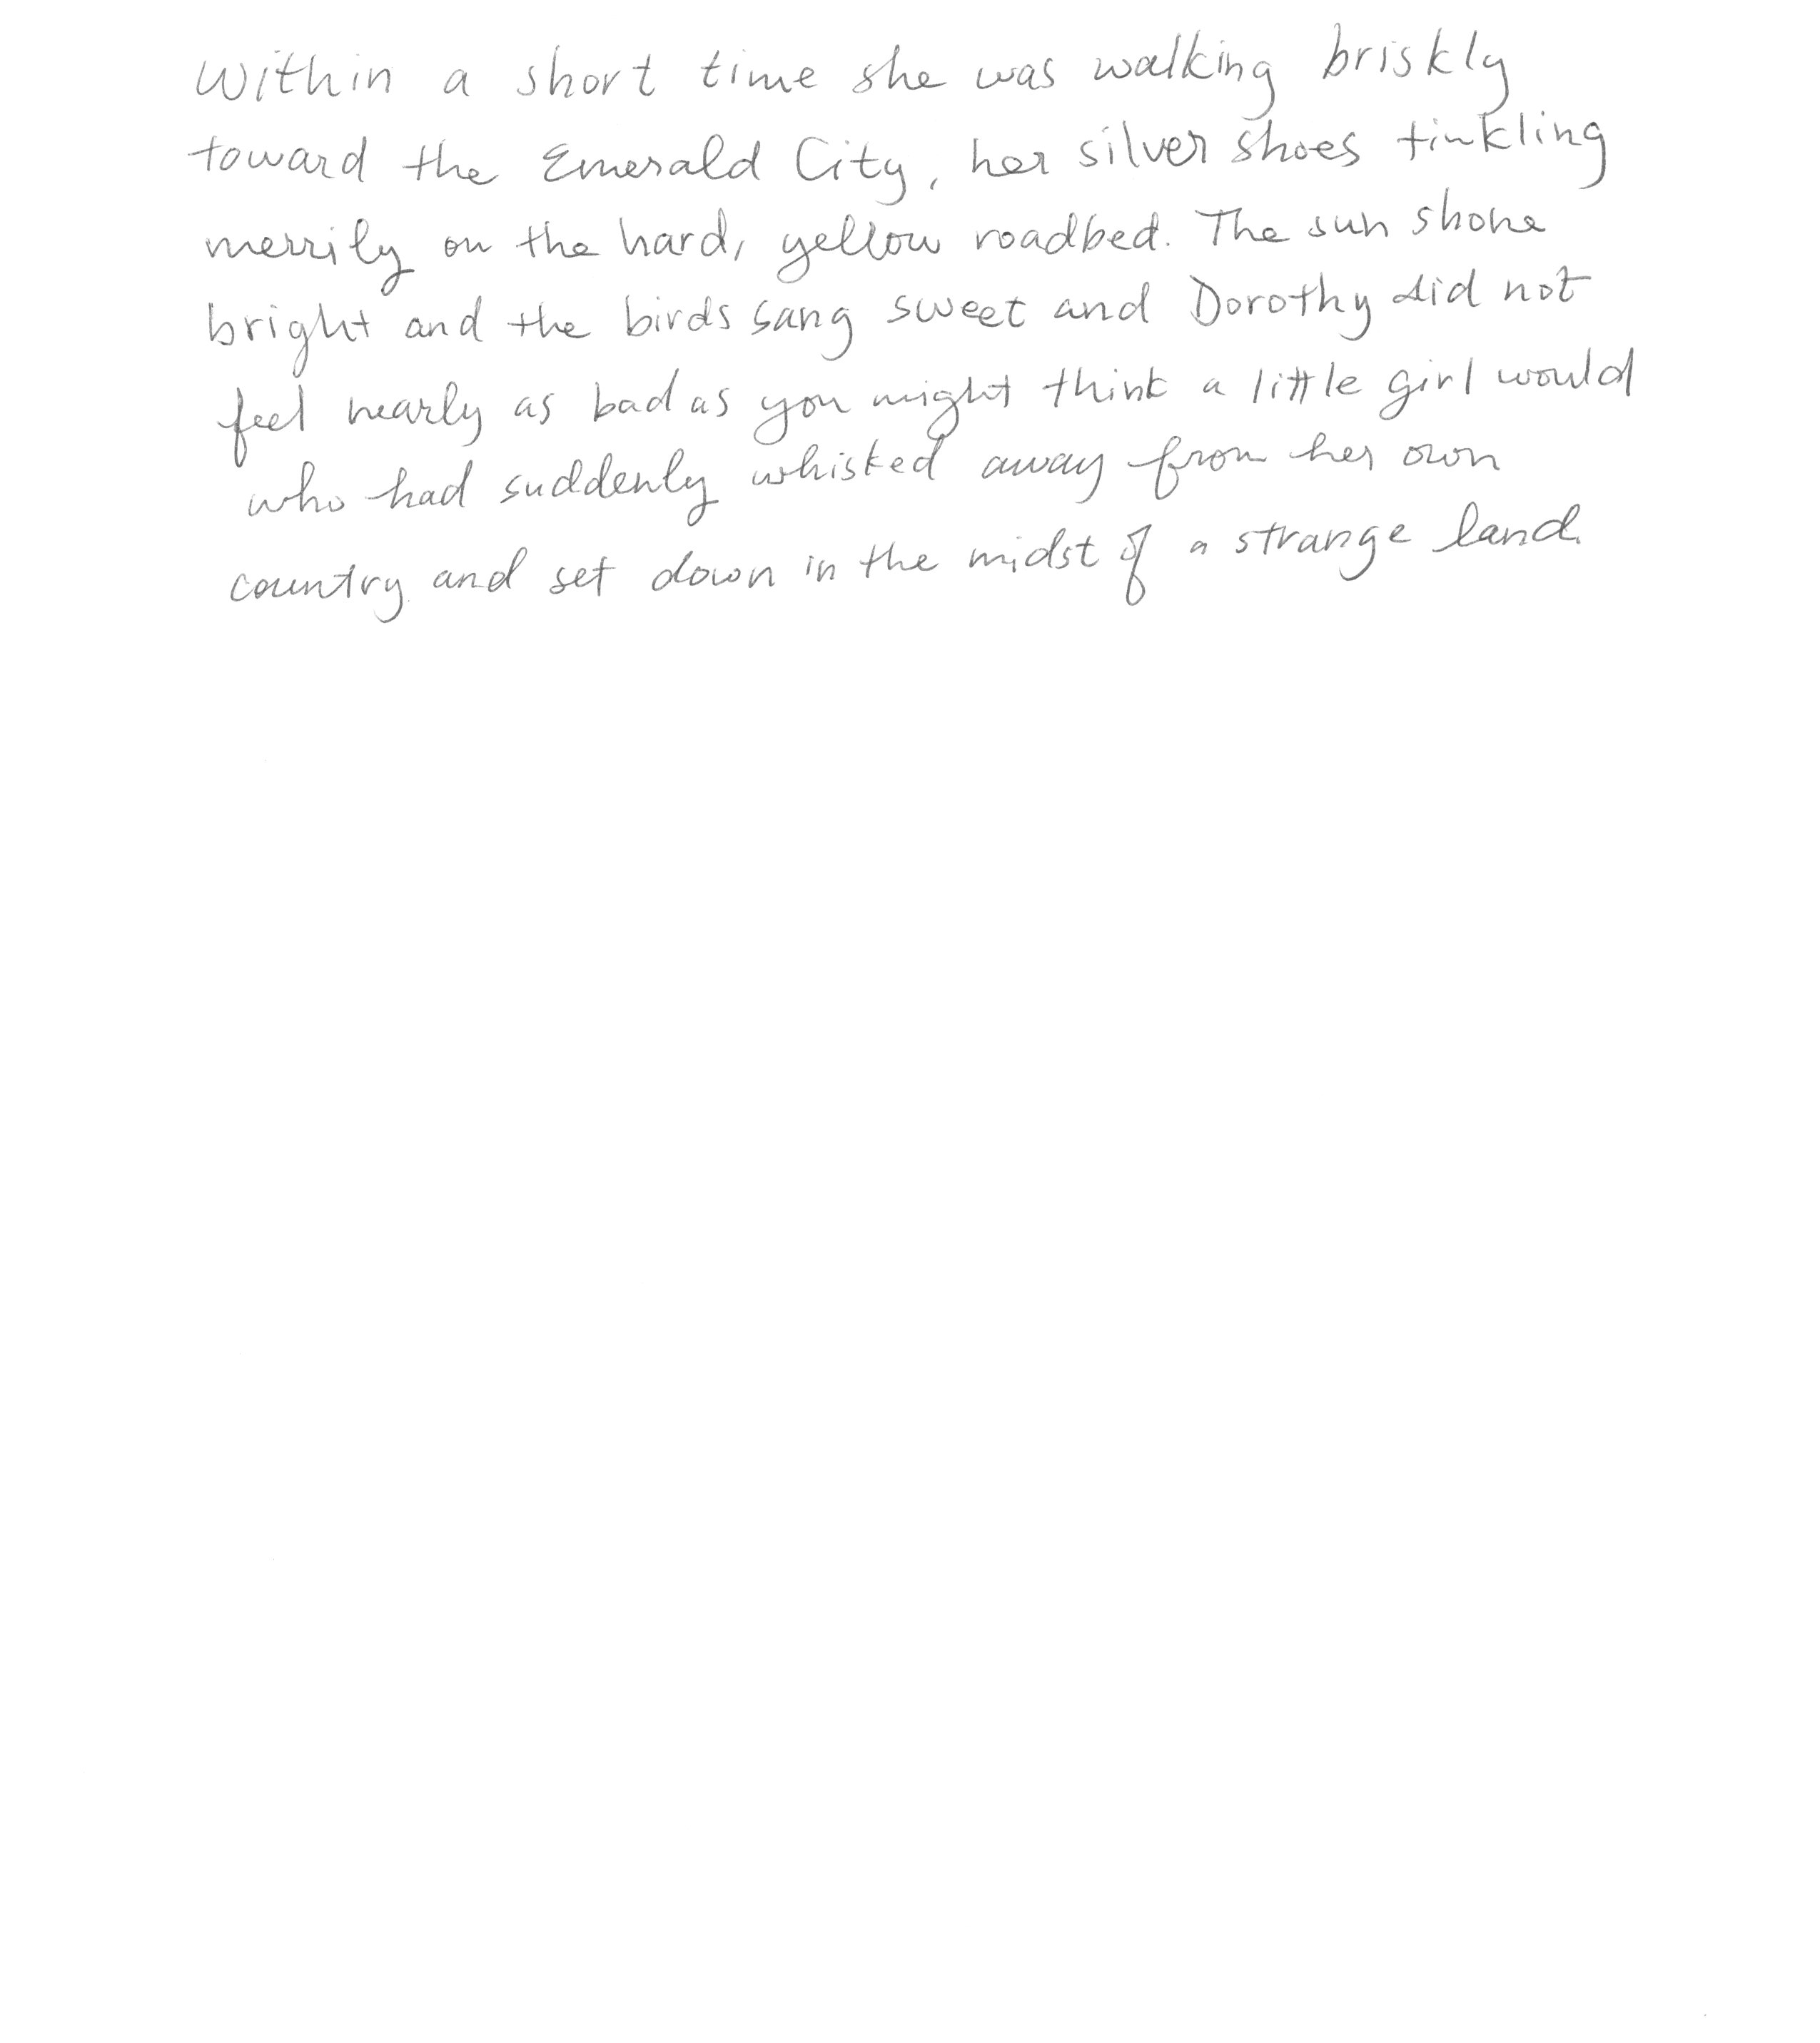 Within a short time she was walking briskly
toward the Emerald City, her silver shoes tinkling
merrily on the hard, yellow roadbed. The sun shone
bright and the birds sang sweet and Dorothy did not
feel nearly as bad as you might think a little girl would
who had suddenly whisked away from her own
country and set down in the midst of a strange land.